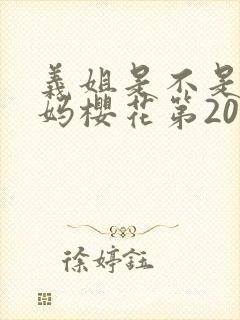 義姐是不是
妈樱花第20
徐婷鈺